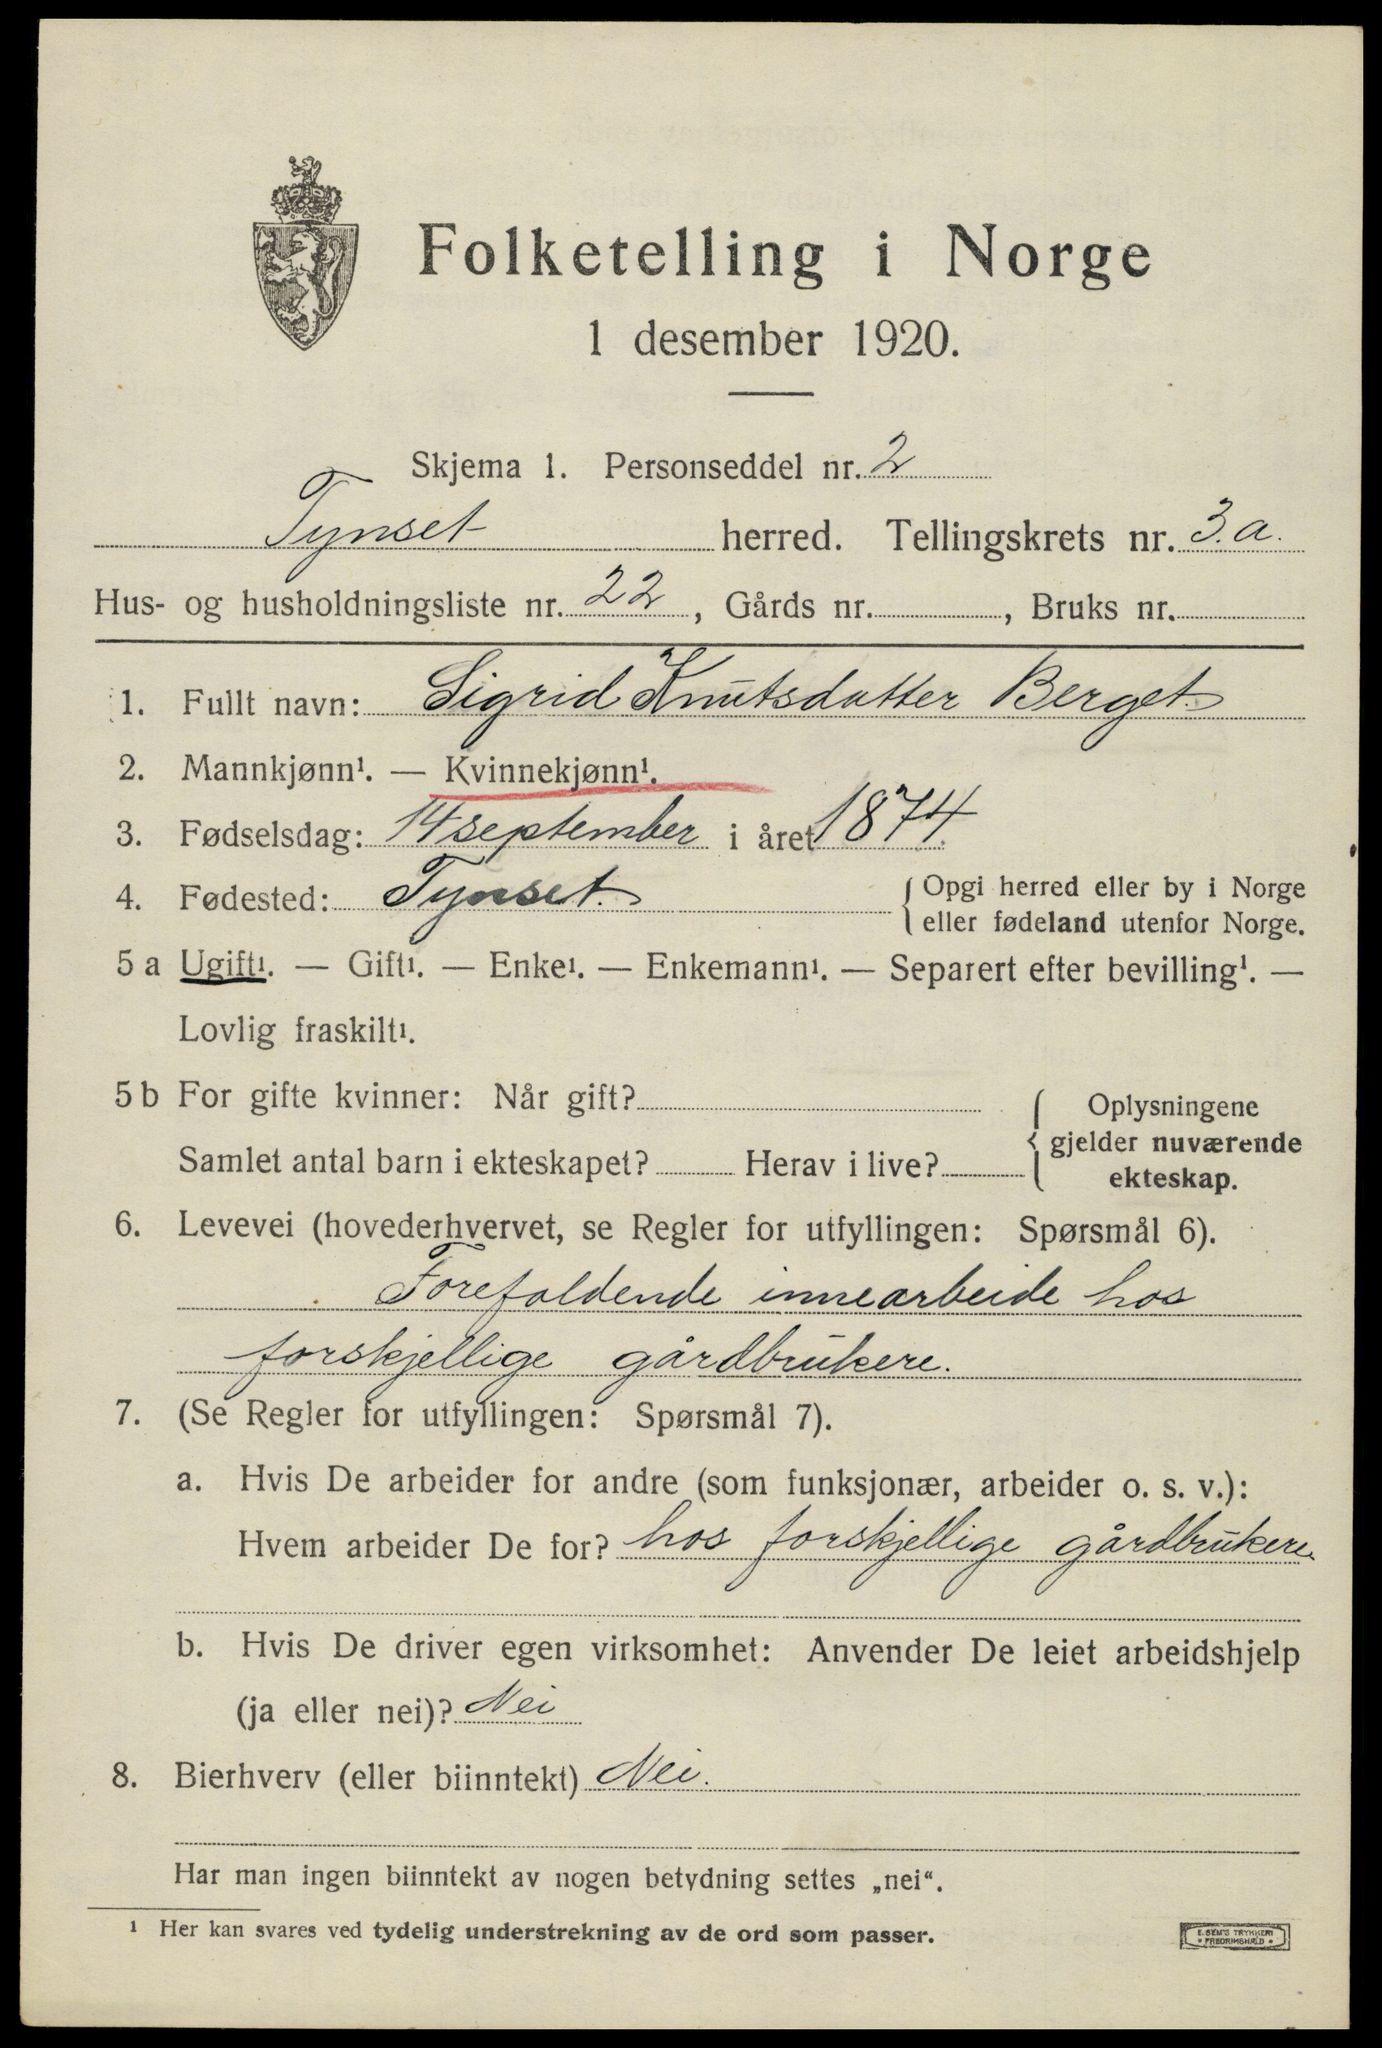 Folketelling i Norge
1 desember 1920.
Skjema 1. Personseddel nr. 2
Tynset herred. Tellingskrets nr. 3.a.
Hus- og husholdningsliste nr. 22, Gårds nr. , Bruks nr.
1. Fullt navn: Sigrid Knutsdatter Berget.
2. Mannkjønn¹. — Kvinnekjønn¹.
3. Fødselsdag: 14 september i året 1874.
4. Fødested: Tynset. { Opgi herred eller by i Norge
eller fødeland utenfor Norge.
5 a Ugift¹. — Gift¹. — Enke¹. — Enkemann¹. — Separert efter bevilling¹. —
Lovlig fraskilt¹.
5 b For gifte kvinner: Når gift? { Oplysningene
gjelder nuværende
Samlet antal barn i ekteskapet? Herav i live? ekteskap.
6. Levevei (hovederhvervet, se Regler for utfyllingen: Spørsmål 6).
Forefaldende innearbeide hos
forskjellige gårdbrukere.
7. (Se Regler for utfyllingen: Spørsmål 7).
a. Hvis De arbeider for andre (som funksjonær, arbeider o. s. v.):
Hvem arbeider De for? hos forskjellige gårdbrukere.
b. Hvis De driver egen virksomhet: Anvender De leiet arbeidshjelp
(ja eller nei)? Nei
8. Bierhverv (eller biinntekt) Nei.
Har man ingen biinntekt av nogen betydning settes „nei“.
¹ Her kan svares ved tydelig understrekning av de ord som passer.
E. SEM'S TRYKKERI
• FREDRIKSHALD •